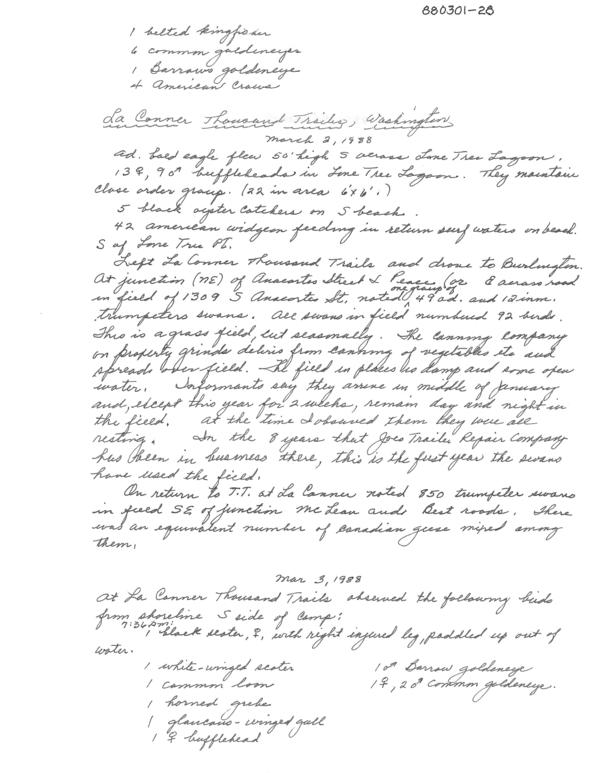 880301-28
1 belted kingfisher
6 common goldeneyes
1 Barrows goldeneye
4 American Crows
La Conner Thousand Trails, Washington
March 2, 1988
ad. bald eagle flew 50' high S across Lone Tree Lagoon.
13♀, 9♂ buffleheads in Lone Tree Lagoon. They maintain
close order group. (22 in area 6'x6'.)
5 black oyster catchers on S beach.
42 american widgeon feeding in return surf waters on beach.
S of Lone Tree Pt.
Left La Conner Thousand Trails and drove to Burlington.
At junction (NE) of Anacortes Street & Peace (or E across road
in field of 1309 S Anacortes St, noted one group of 49 ad. and 12 imm.
trumpeters swans. All swans in field numbered 92 birds.
This is a grass field, cut seasonally. The canning company
on property grinds debris from canning of vegetables etc and
spreads over field. The field in places is damp and some open
water. Informants say they arrive in middle of January
and, except this year for 2 weeks, remain day and night in
the field. At the time I observed them they were all
resting. In the 8 years that Joes Trailer Repair Company
has been in business there, this is the first year the swans
have used the field.
On return to T.T. at La Conner noted 850 trumpeter swans
in field SE of junction McLean and Best roads. There
was an equivalent number of Canadian geese mixed among
them.
Mar 3, 1988
At La Conner Thousand Trails observed the following birds
from shoreline S side of Camp:
7:36 AM:
1 black scoter, ♀, with right injured leg, paddled up out of
water.
1 white-winged scoter
1 common loon
1 horned grebe
1 glaucous-winged gull
1 ♀ bufflehead
1♂ Barrow goldeneye
1♀, 2♂ Common goldeneye.